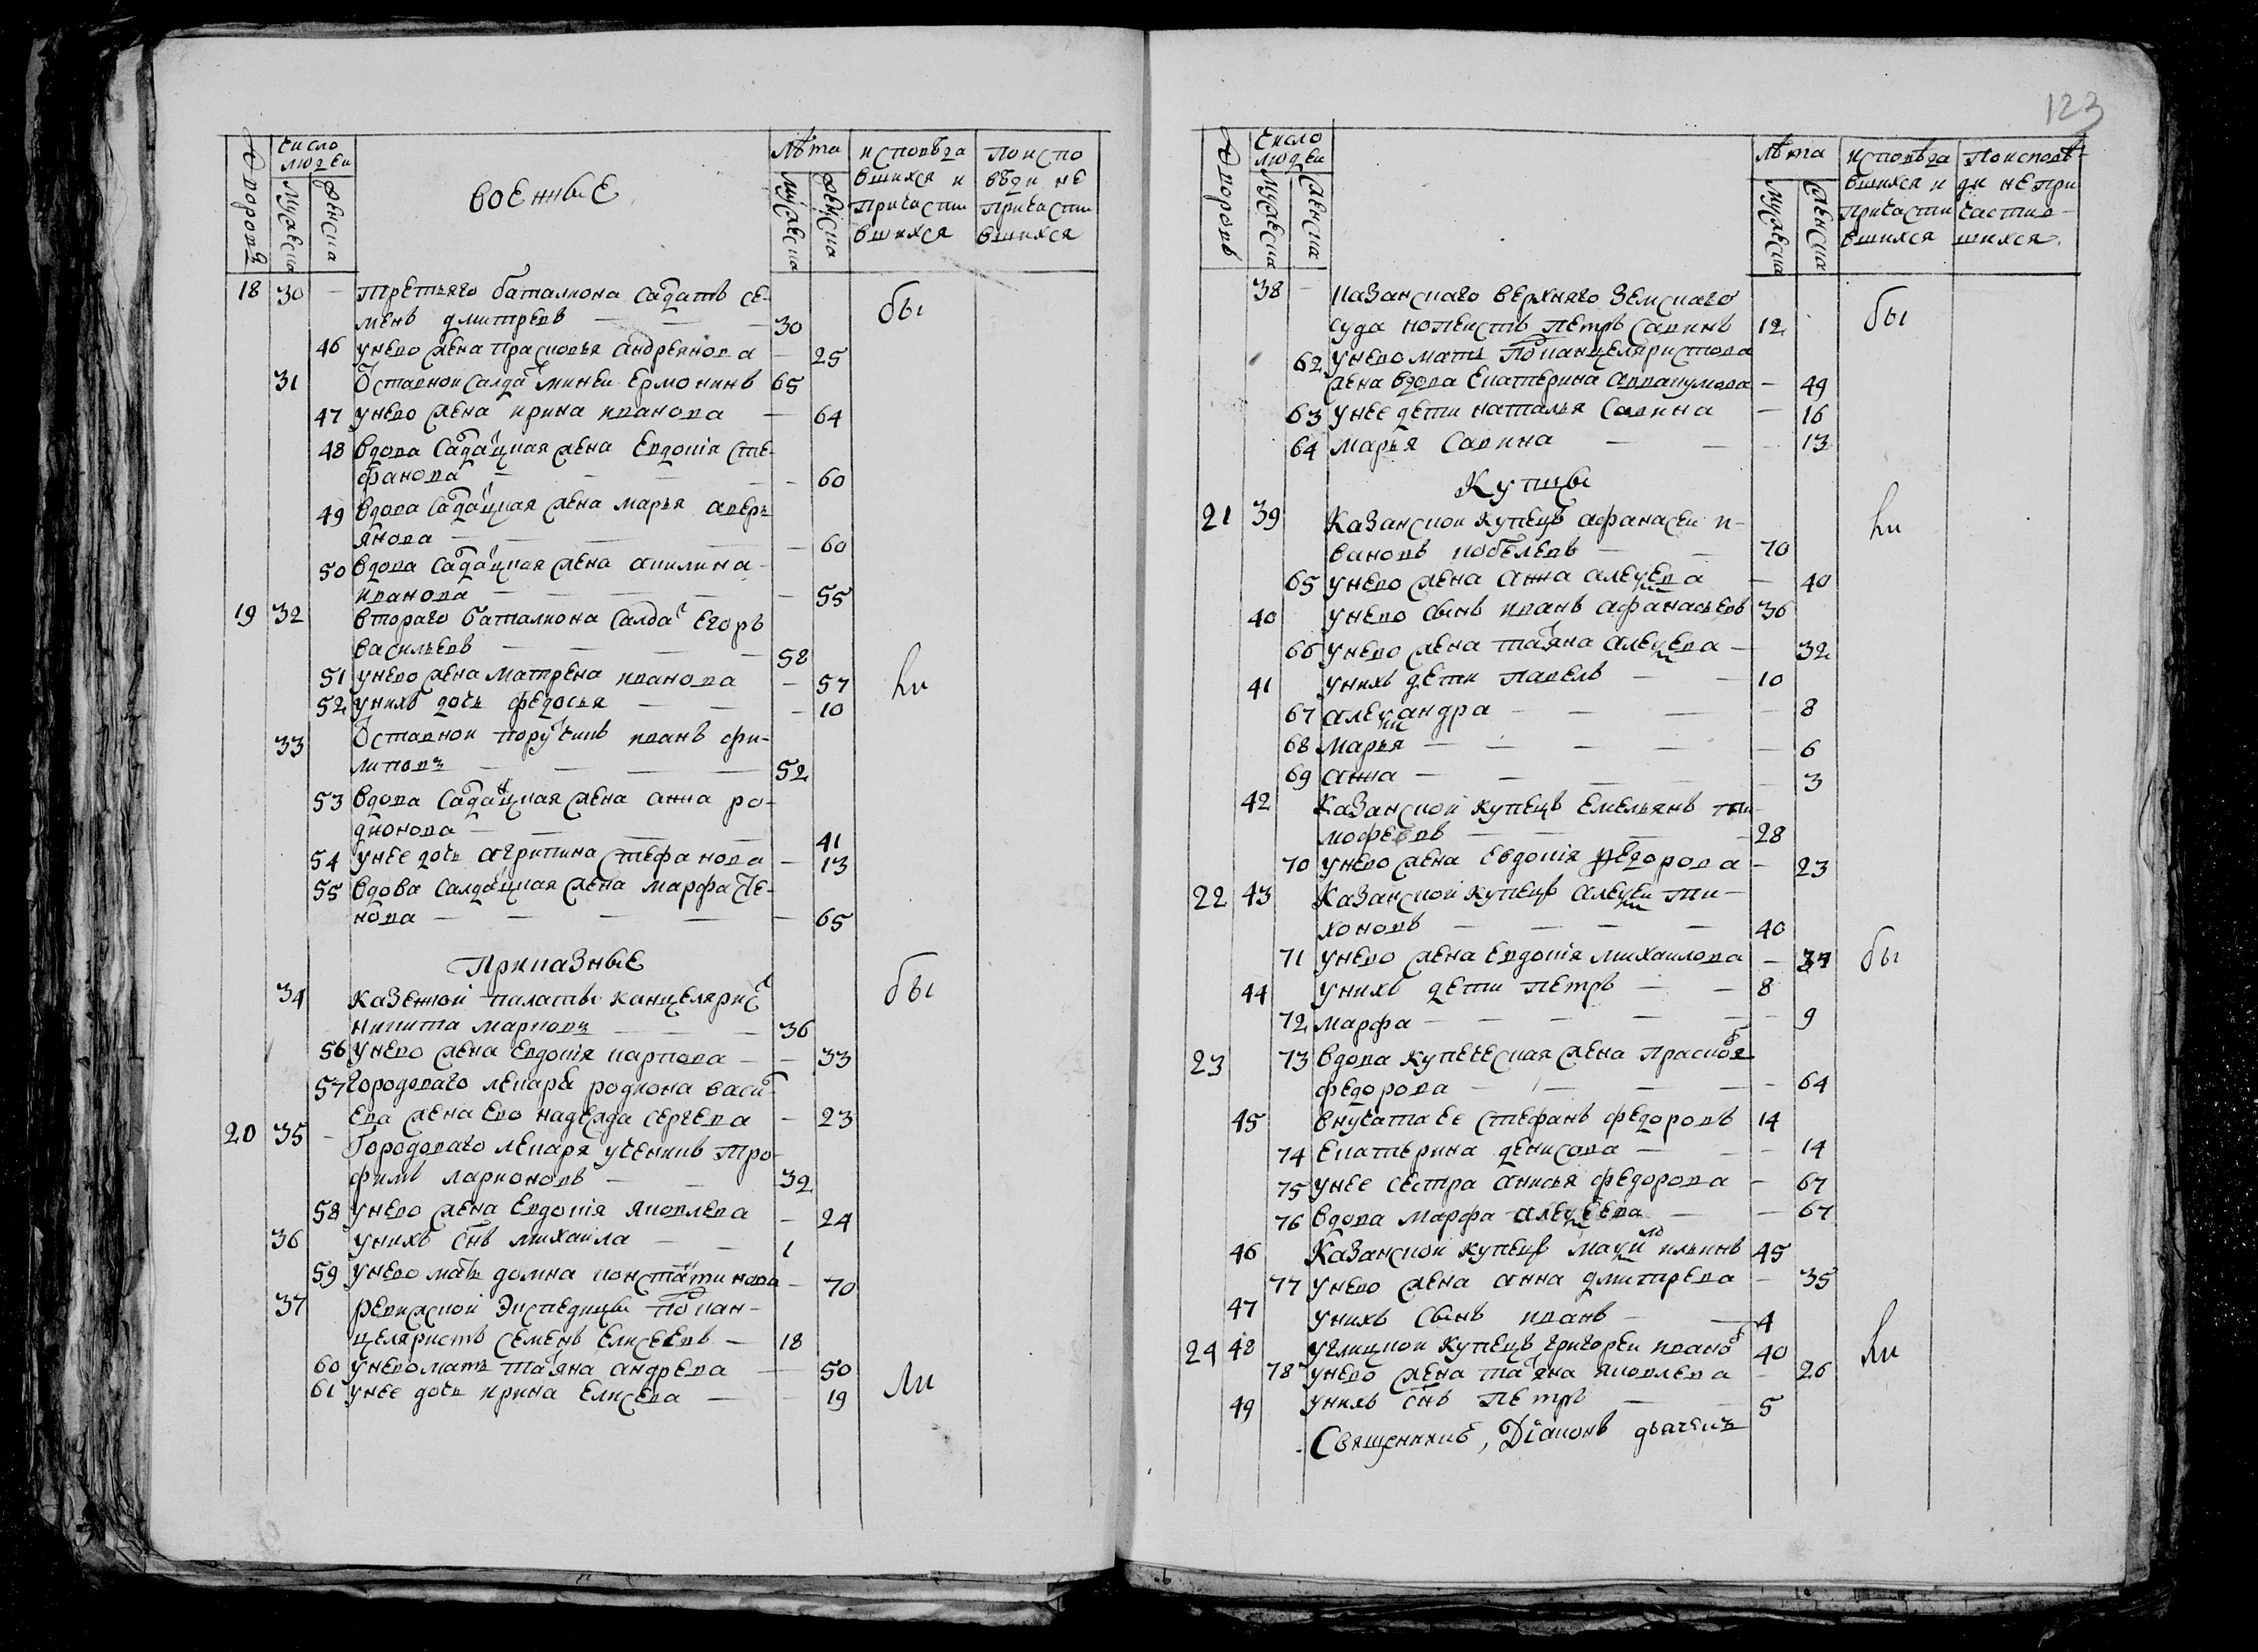 Дворовъ
Число людеи
мужеска
женска
Военные
Лѣта
мужеска
женска
исповѣда
вшихся и
причасти
вшихся
По испо
вѣди не
причасти
вшихся
18 30 - Третьяго баталиона салдатъ Се-
менъ Дмитревъ - 30 бы
46 у него жена Прасковья Андреянова - 25
31 Оставной салдатъ Миней Ермонинъ 65
47 у него жена Ирина Иванова - 64
48 вдова салдацкая жена Евдокія Сте-
фанова - 60
49 вдова салдацкая жена Марья Авер-
янова - 60
50 вдова салдацкая жена Акилина
Иванова - 55
19 32 втораго баталиона салдатъ Егоръ
Васильевъ - 58
51 у него жена Матрена Иванова - 57 ли
52 у нихъ дочь Федосья - 10
33 Оставной порутчикъ Иванъ Фи-
липовъ - 52
53 вдова салдацкая жена Анна Ро-
дионова - 41
54 у нее дочь Агрипина Стефанова - 13
55 вдова салдацкая жена Марфа Се-
нова - 65
Приказные
34 казенной палаты канцелярист
Никита Марковъ - 36 бы
56 у него жена Евдокія Карпова - 33
57 городоваго лекаря Родиона Васил
ева жена ево Надежда Сергева - 23
20 35 - Городоваго лекаря ученикъ Тро-
фимъ Ларионовъ - 32
58 у него жена Евдокія Яковлева - 24
36 у нихъ снъ Михаила - 1
59 у него мать Домна Константинова - 70
37 Ревижской экспедицы подкан-
целяристъ Семенъ Елисеевъ - 18
60 у него мать Татьяна Андрева - 50
61 у нее дочь Ирина Елисева - 19 ли
123
Дворовъ
Число людеи
мужеска
женска
Лѣта
мужеска
женска
исповѣда
вшихся и
причасти
вшихся
По исповѣ-
ди не при
частив-
шихся.
38 - Казанскаго верхняго земскаго
суда копеистъ Петръ Савинъ 12 бы
62 у него мать подканцеляристова
жена вдова Екатерина Аввакумова - 49
63 у нее дети Наталья Савина - 16
64 Марья Савина - 13
Купцы
21 39 Казанской купецъ Афанасеи И-
вановъ Кобелевъ - 70 ли
65 у него жена Анна Алексева - 40
40 у него сынъ Иванъ Афанасьевъ 36
66 у него жена Татьяна Алексева - 32
41 у нихъ дети Павелъ - 10
67 Александра - 8
68 Марья - 6
69 Анна - 3
42 Казанской купецъ Емельянъ Ти-
мофеевъ - 28
70 у него жена Евдокія Федорова - 23
22 43 Казанской купецъ Алексеи Ти-
хоновъ - 40
71 у него жена Евдокія Михаилова - 34 бы
44 у нихъ дети Петръ - 8
72 Марфа - 9
23 73 вдова купеческая жена Прасковя
Федорова - 64
45 внучата ее Стефанъ Федоровъ 14
74 Екатерина Денисова - 14
75 у нее сестра Анисья Федорова - 67
76 вдова Марфа Алексеева - 67
46 Казанской купецъ Максимъ Ильинъ 45
77 у него жена Анна Дмитрева - 35
47 у нихъ сынъ Иванъ - 4
24 48 углицкой купецъ Григореи Ивановъ 40 ли
78 у него жена Татьяна Яковлева - 26
49 у нихъ снъ Петръ - 5
Священникъ, Діаконъ дьячекъ